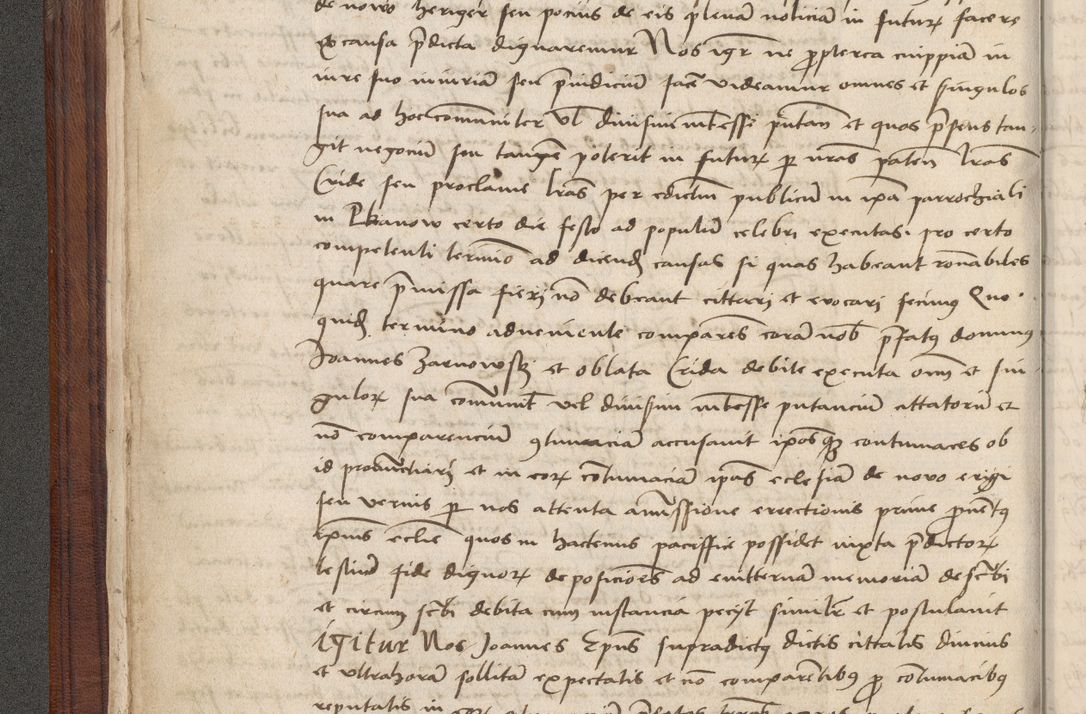 de novo heriger seu pocius de eis plenam noticiam in futur facere
ex causa pdicta dignaremur Nos igr ne ppterea cuippiam in
iure suo iniuriam seu piudicium facere videamur omnes et singulos
sua ad hoc communiter vl divisim intesse putan et quos pfens tan-
git negocium seu tangere poterit in futur p nras paten lras
Cride seu proclame lras per edictum publicum in ipa parrochiali
in Pkanow certo die festo ad populum celebri executas pro certo
competenti termino ad dicend causas si quas habeant ronabiles
quare pmissa fieri no debeant cittari et evocari fecimus Quo
quid termino adveniente comparens coram nob pfatus dominus
Joannes Zarnowski et oblata Crida debite executa oium et sin-
gulor sua comunit vel divisim intesse putancium cittatorum et
no comparencium contumaciam accusavit iposque contumaces ob
id pronunctiari et in eor contumaciam ipas eclesiam de novo erigi
seu verius p nos attenta amissione errectionis prime pventus
ipius eclie quos in hactenus paciffice possidet iuxta pdictor
testium fide dignor deposiciones ad eviternam memoriam describi
et circum scribi debita cum instancia peciit similr et postulavit
igitur Nos Joannes Epus supradictus dictis cittatis diucius
et ultra horam sollitam expectatis et non comparentibus p contumacibus
reputatis in